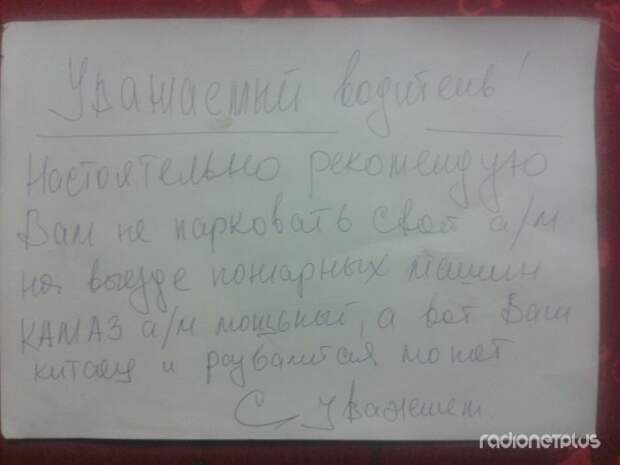 Уважаемый водитель!
Настоятельно рекомендую
Вам не парковать свой а/м
на выезде пожарных машин
КАМАЗ а/м мощьный, а вот Ваш
китаец и развалится может
С уважением
radionetplus